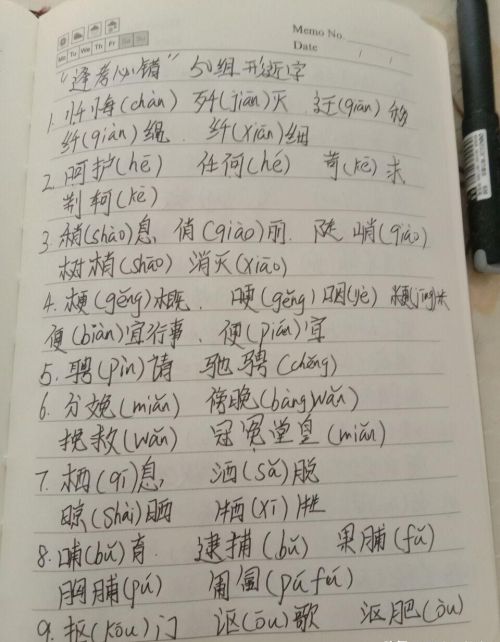 Memo No.
Mo Tu We Th Fr Sa Su
Date / /
“逢考必错” 50组形近字
1. 忏悔(chàn) 歼(jiān)灭 迁(qiān)移
纤(qiàn)绳 纤(xiān)细
2. 呵护(hē) 任何(hé) 苛(kē)求
荆轲(kē)
3. 稍(shào)息 俏(qiào)丽 陡峭(qiào)
树梢(shāo) 消灭(xiāo)
4. 梗(gěng)概 哽(gěng)咽(yè) 粳(jīng)米
便(biàn)宜行事、便(pián)宜
5. 聘(pìn)请 驰骋(chěng)
6. 分娩(miǎn) 傍晚(bàng)wǎn)
挽救(wǎn) 冠冕堂皇(miǎn)
7. 栖(qī)息 洒(sǎ)脱
晾(shài)晒 牺(xī)牲
8. 哺(bǔ)育 逮捕(bǔ) 果脯(fǔ)
胸脯(pú) 匍匐(pú fú)
9. 抠(kōu)门 讴(ōu)歌 沤肥(òu)